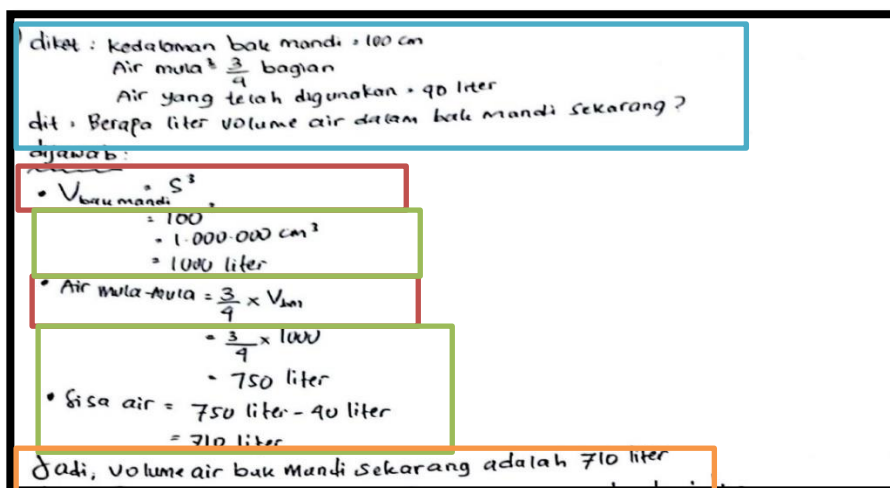 diket : Kedalaman bak mandi = 100 cm
Air mula² 3/4 bagian
Air yang telah digunakan = 40 liter
dit : Berapa liter volume air dalam bak mandi sekarang ?
dijawab :
• V bak mandi = S³
= 100³
= 1.000.000 cm³
= 1000 liter
• Air mula-mula = 3/4 × V bak
= 3/4 × 1000
= 750 liter
• Sisa air = 750 liter - 40 liter
= 710 liter
Jadi, volume air bak mandi sekarang adalah 710 liter